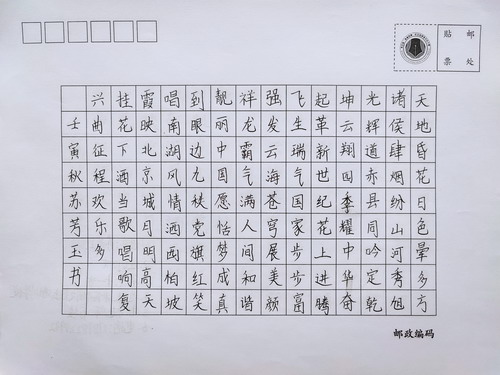 贴 邮
票 处
天地昏花日色晕多方
诸侯肆烟纷山河秀旭
光辉道赤县同吟定乾
坤云翔四季耀中华奋
起革新世纪花上进腾
飞生瑞气国家步步富
强发云海苍穹展美颜
祥龙霸气满人间和谐
靓丽中国愿恬梦成真
到眼边九秩党旗红笑
唱南湖风情洒画怕坡
霞映北京城月明高天
挂花下洒当歌唱响复
兴曲征程欢乐多
壬寅秋苏芳玉书
邮政编码